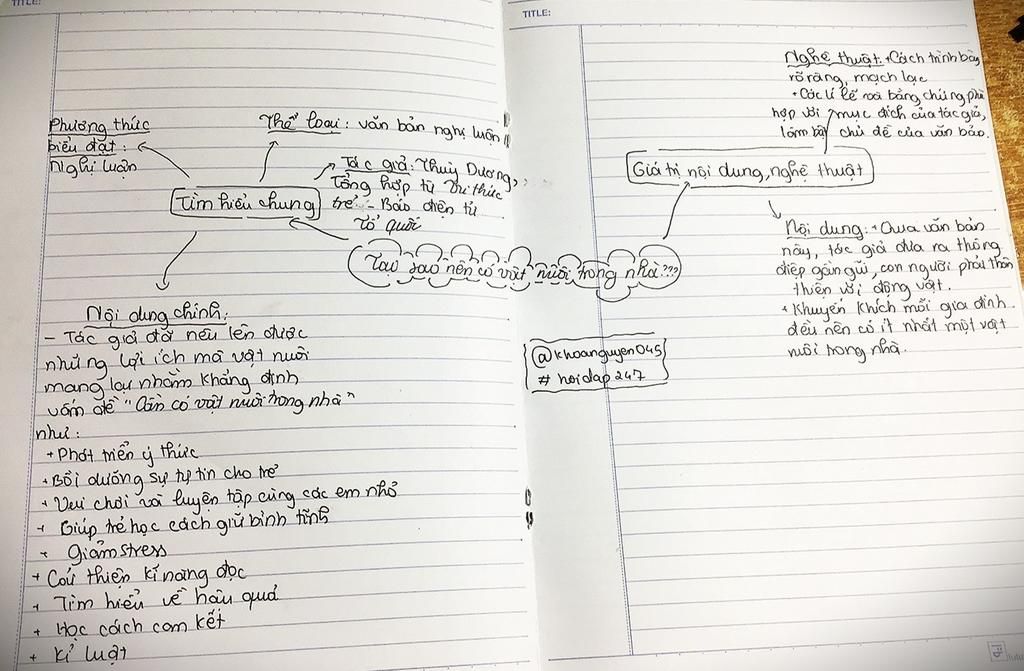 TITLE:
Phương thức
biểu đạt:
Nghị luận
Thể loại: văn bản nghị luận
Tác giả: Thuỳ Dương,
Tổng hợp từ Tri thức
trẻ - Báo điện tử
Tổ quốc
Tìm hiểu chung
Tại sao nên có vật nuôi trong nhà???
Nội dung chính:
- Tác giả đã nêu lên được
những lợi ích mà vật nuôi
mang lại nhằm khẳng định
vấn đề "Cần có vật nuôi trong nhà"
như:
+ Phát triển ý thức
+ Bồi dưỡng sự tự tin cho trẻ
+ Vui chơi và luyện tập cùng các em nhỏ
+ Giúp trẻ học cách giữ bình tĩnh
+ Giảm stress
+ Cải thiện kĩ năng đọc
+ Tìm hiểu về hậu quả
+ Học cách cam kết
+ Kỉ luật
TITLE:
Nghệ thuật: + Cách trình bày
rõ ràng, mạch lạc
+ Các lí lẽ và bằng chứng phù
hợp với mục đích của tác giả,
làm bật chủ đề của văn bản.
Giá trị nội dung, nghệ thuật
Nội dung: + Qua văn bản
này, tác giả đưa ra thông
điệp gần gũi, con người phải thân
thiện với động vật.
+ Khuyến khích mỗi gia đình
đều nên có ít nhất một vật
nuôi trong nhà.
@khoanguyen045
# hoidap247